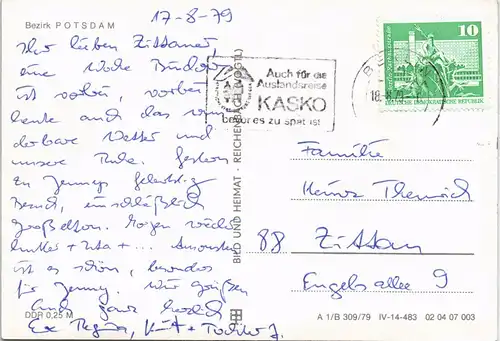 Bezirk POTSDAM
17-8-79
Ihr lieben Zittauer,
eine Woche
ist vorbei, vorbei
heute auch das wun-
derbare Wetter und
unsere Ruhe. Gestern
zu Jennys Geburtstag
Besuch, einschließlich
Großeltern. Morgen wieder
+ + ... Ansonsten
ist es schön, besonders
für Jenny. Wir grüßen
Euch ganz herzlich
Eure Regina, + Tochter J.
DDR 0,25 M
BILD UND HEIMAT · REICHENBACH (VOGTL)
Auch für die
Auslandsreise
KASKO
bevor es zu spät ist
10
DEUTSCHE DEMOKRATISCHE REPUBLIK
Familie
Heinz
88 Zittau
Engels allee 9
A 1/B 309/79 IV-14-483 02 04 07 003